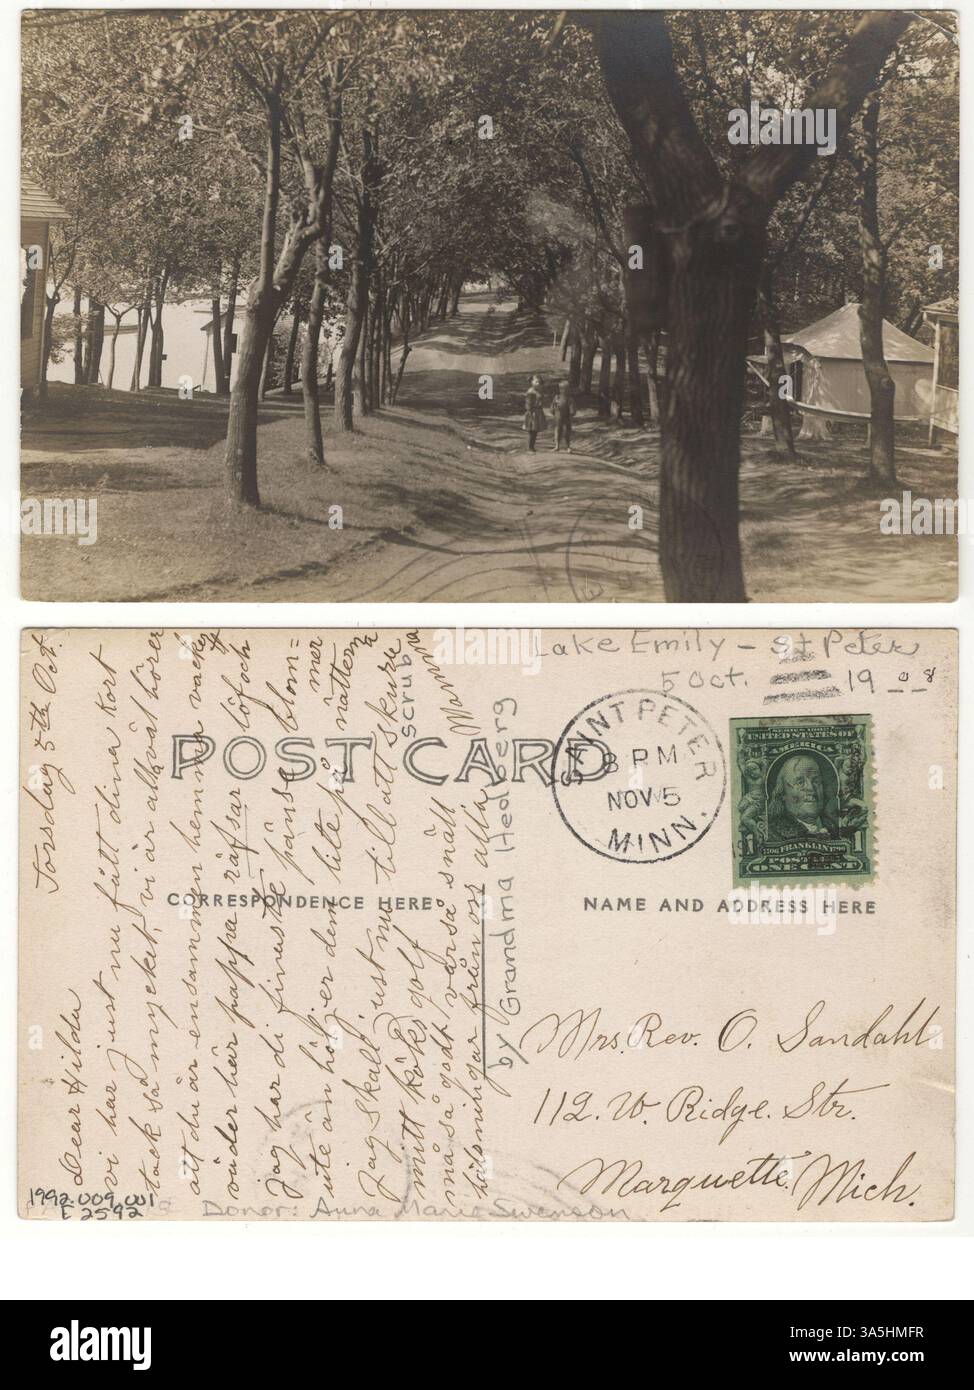 alamy
Lake Emily - St Peter
5 Oct. 1908
POST CARD
SAINT PETER
8 PM
NOV 5
MINN.
SERIES 1902
UNITED STATES OF
AMERICA
1706 FRANKLIN 1790
1 POSTAGE 1
ONE CENT
CORRESPONDENCE HERE
NAME AND ADDRESS HERE
Torsdag 5th Oct.
Dear Hilda
vi har just nu fått dina kort
tack så mycket, vi är alla väl hörer
att du är ensammen hemma vacker
väder här pappa räfsar löf och
Jag har di finuste pänse blom=
mer
ute än höly er dem lite på nättern
Jag skall just nu till att skura
scrub
mitt köks golf Mamma
må så godt vår så snäll
hälsningar från oss alla
by Grandma Hedberg
Mrs. Rev. O. Sandahl
112. W. Ridge. Str.
Marquette Mich.
1992.009.001
E 2592
Donor: Anna Marie Swenson
alamy
Image ID: 3A5HMFR
www.alamy.com